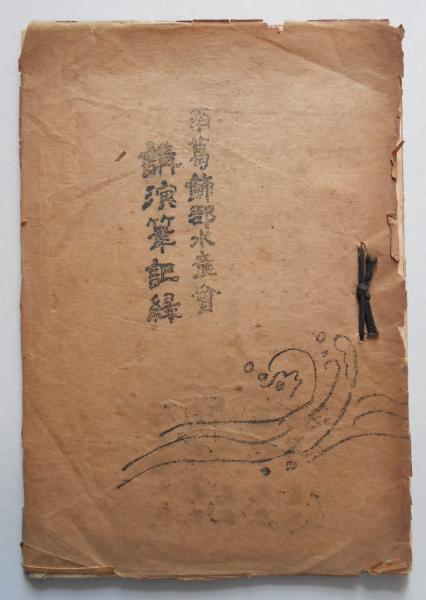 南葛飾郡水産會
講演筆記録